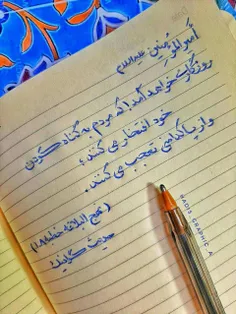 أمیرالمؤمنین علیه‌السلام
روزگاری خواهد آمد! که مردم به گناه کردن
خود افتخار می کنند؛
و از پاکدامنی تعجب می کنند.
(نهج البلاغه خطبه
حدیث گرافیک
HADIS_GRAPHIC_A